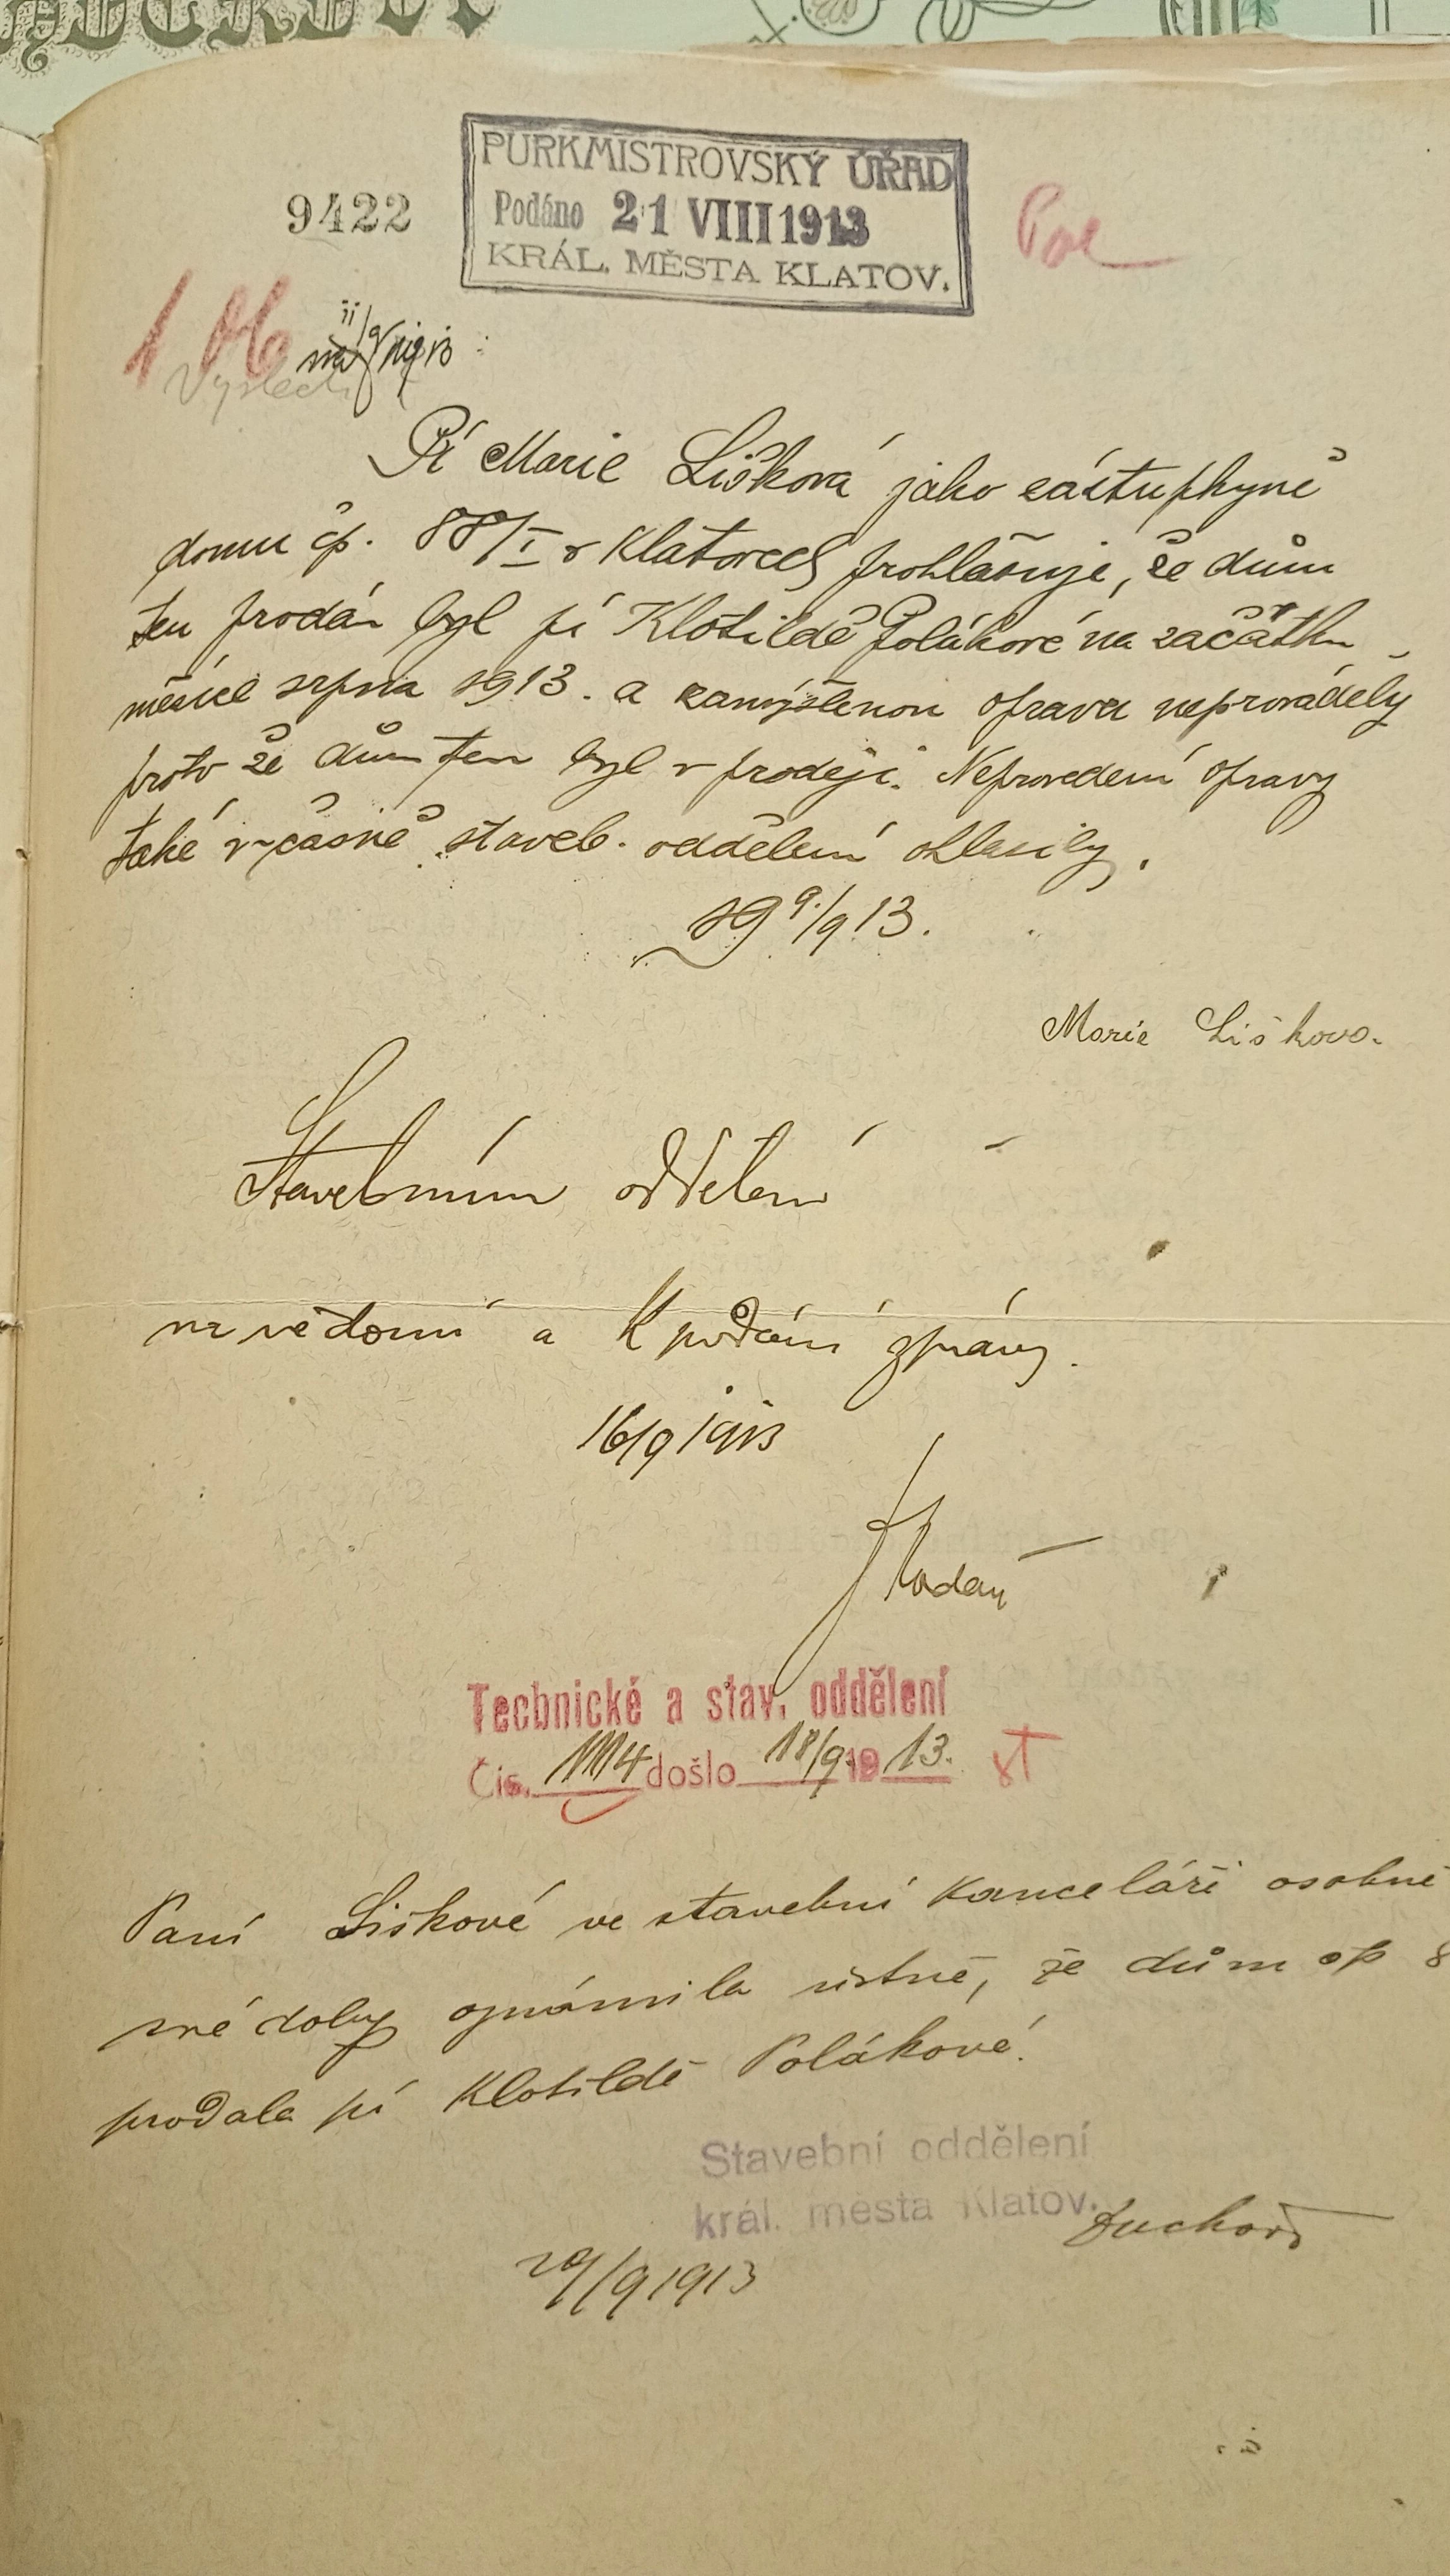 PURKMISTROVSKÝ ÚŘAD
9422
Podáno 21 VIII 1913
KRÁL. MĚSTA KLATOV.
Pí Marie Lišková jako zástupkyně
domu čp. 88/I v Klatovech prohlašuje, že dům
ten prodán byl pí Klotildě Polákové na začátku
měsíce srpna 1913. a zamýšlenou opravu neprováděly
proto že dům ten byl v prodeji. Neprovedení opravy
také v čas staveb. oddělení ohlásily.
19 9./9 13.
Marie Lišková.
Stavebnímu oddělení
na vědomí a k podání zprávy.
16/9 1913
Technické a stav. oddělení
Čís. 1114 došlo 18/9. 1913.
Paní Lišková ve stavební kanceláři osobně
své doby oznámila ústně, že dům čp 8
prodala pí Klotildě Polákové.
Stavební oddělení
král. města Klatov.
29/9 1913